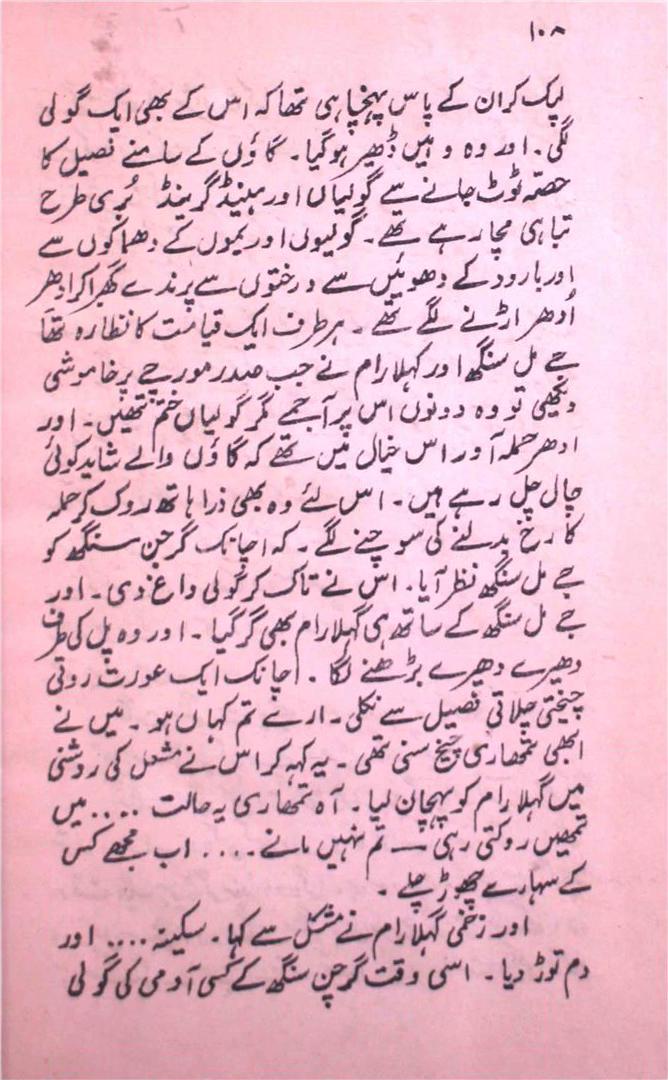 ۱۰۸
لپک کر ان کے پاس پہنچا ہی تھا کہ اس کے بھی ایک گولی
لگی۔ اور وہ وہیں ڈھیر ہو گیا۔ گاؤں کے سامنے فصیل کا
حصّہ ٹوٹ جانے سے گولیاں اور ہینڈ گرینڈ بُری طرح
تباہی مچا رہے تھے۔ گولیوں اور بموں کے دھماکوں سے
اور بارود کے دھوئیں سے درختوں سے پرندے گھبرا کر ادھر
اُدھر اڑنے لگے تھے۔ ہر طرف ایک قیامت کا نظارہ تھا
جے مل سنگھ اور گہلا رام نے جب صدر مورچے پر خاموشی
دیکھی تو وہ دونوں اس پر آ جمے مگر گولیاں ختم تھیں۔ اور
ادھر حملہ آور اس خیال میں تھے کہ گاؤں والے شاید کوئی
چال چل رہے ہیں۔ اس لئے وہ بھی ذرا ہاتھ روک کر حملہ
کا رخ بدلنے کی سوچنے لگے۔ کہ اچانک گرجن سنگھ کو
جے مل سنگھ نظر آیا۔ اس نے تاک کر گولی داغ دی۔ اور
جے مل سنگھ کے ساتھ ہی گہلا رام بھی گر گیا۔ اور وہ پل کی طرف
دھیرے دھیرے بڑھنے لگا۔ اچانک ایک عورت روتی
چیختی چلاتی فصیل سے نکلی۔ ارے تم کہاں ہو۔ میں نے
ابھی تمھاری چیخ سنی تھی۔ یہ کہہ کر اس نے مشعل کی روشنی
میں گہلا رام کو پہچان لیا۔ آہ تمھاری یہ حالت .... میں
تمھیں روکتی رہی — تم نہیں مانے .... اب مجھے کس
کے سہارے چھوڑ چلے۔
اور زخمی گہلا رام نے مشکل سے کہا۔ سکینہ .... اور
دم توڑ دیا۔ اسی وقت گرجن سنگھ کے کسی آدمی کی گولی